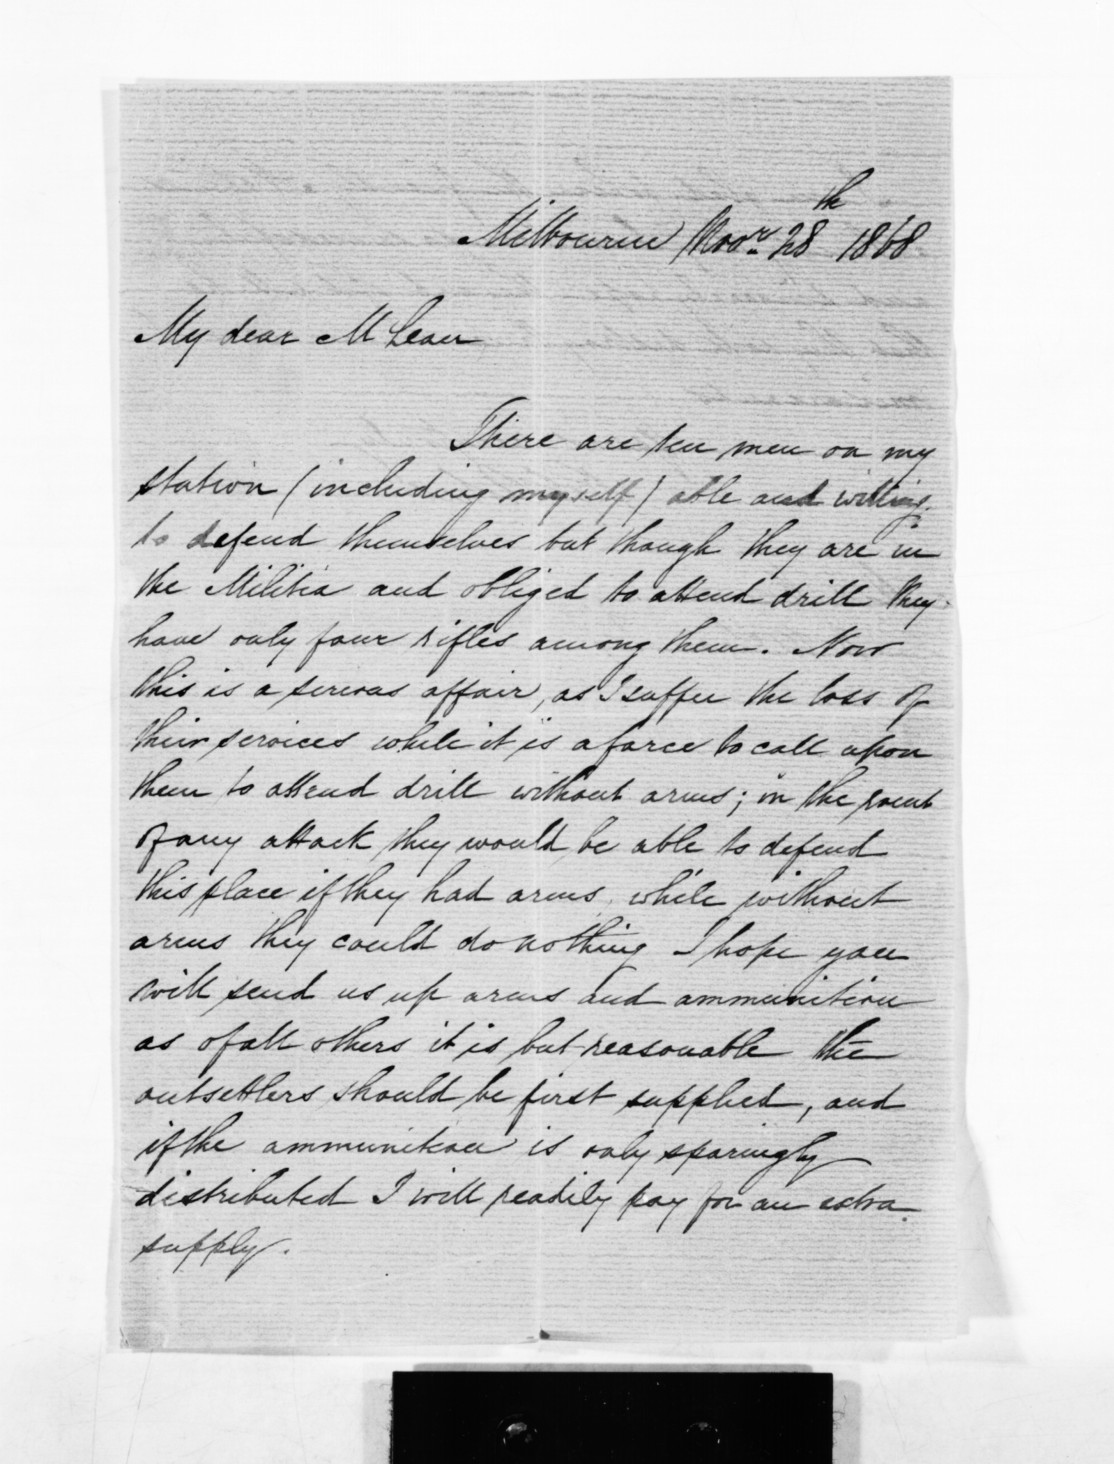 Milbourne Novr. 28th 1868
My dear McLean
There are ten men on my
station (including myself) able and willing
to defend themselves but though they are in
the Militia and obliged to attend drill they
have only four rifles among them. Now
this is a serious affair, as I suffer the loss of
their services while it is a farce to call upon
them to attend drill without arms; in the event
of any attack they would be able to defend
this place if they had arms while without
arms they could do nothing I hope you
will send us up arms and ammunition
as of all others it is but reasonable the
outsettlers should be first supplied, and
if the ammunition is only sparingly
distributed I will readily pay for an extra
supply.